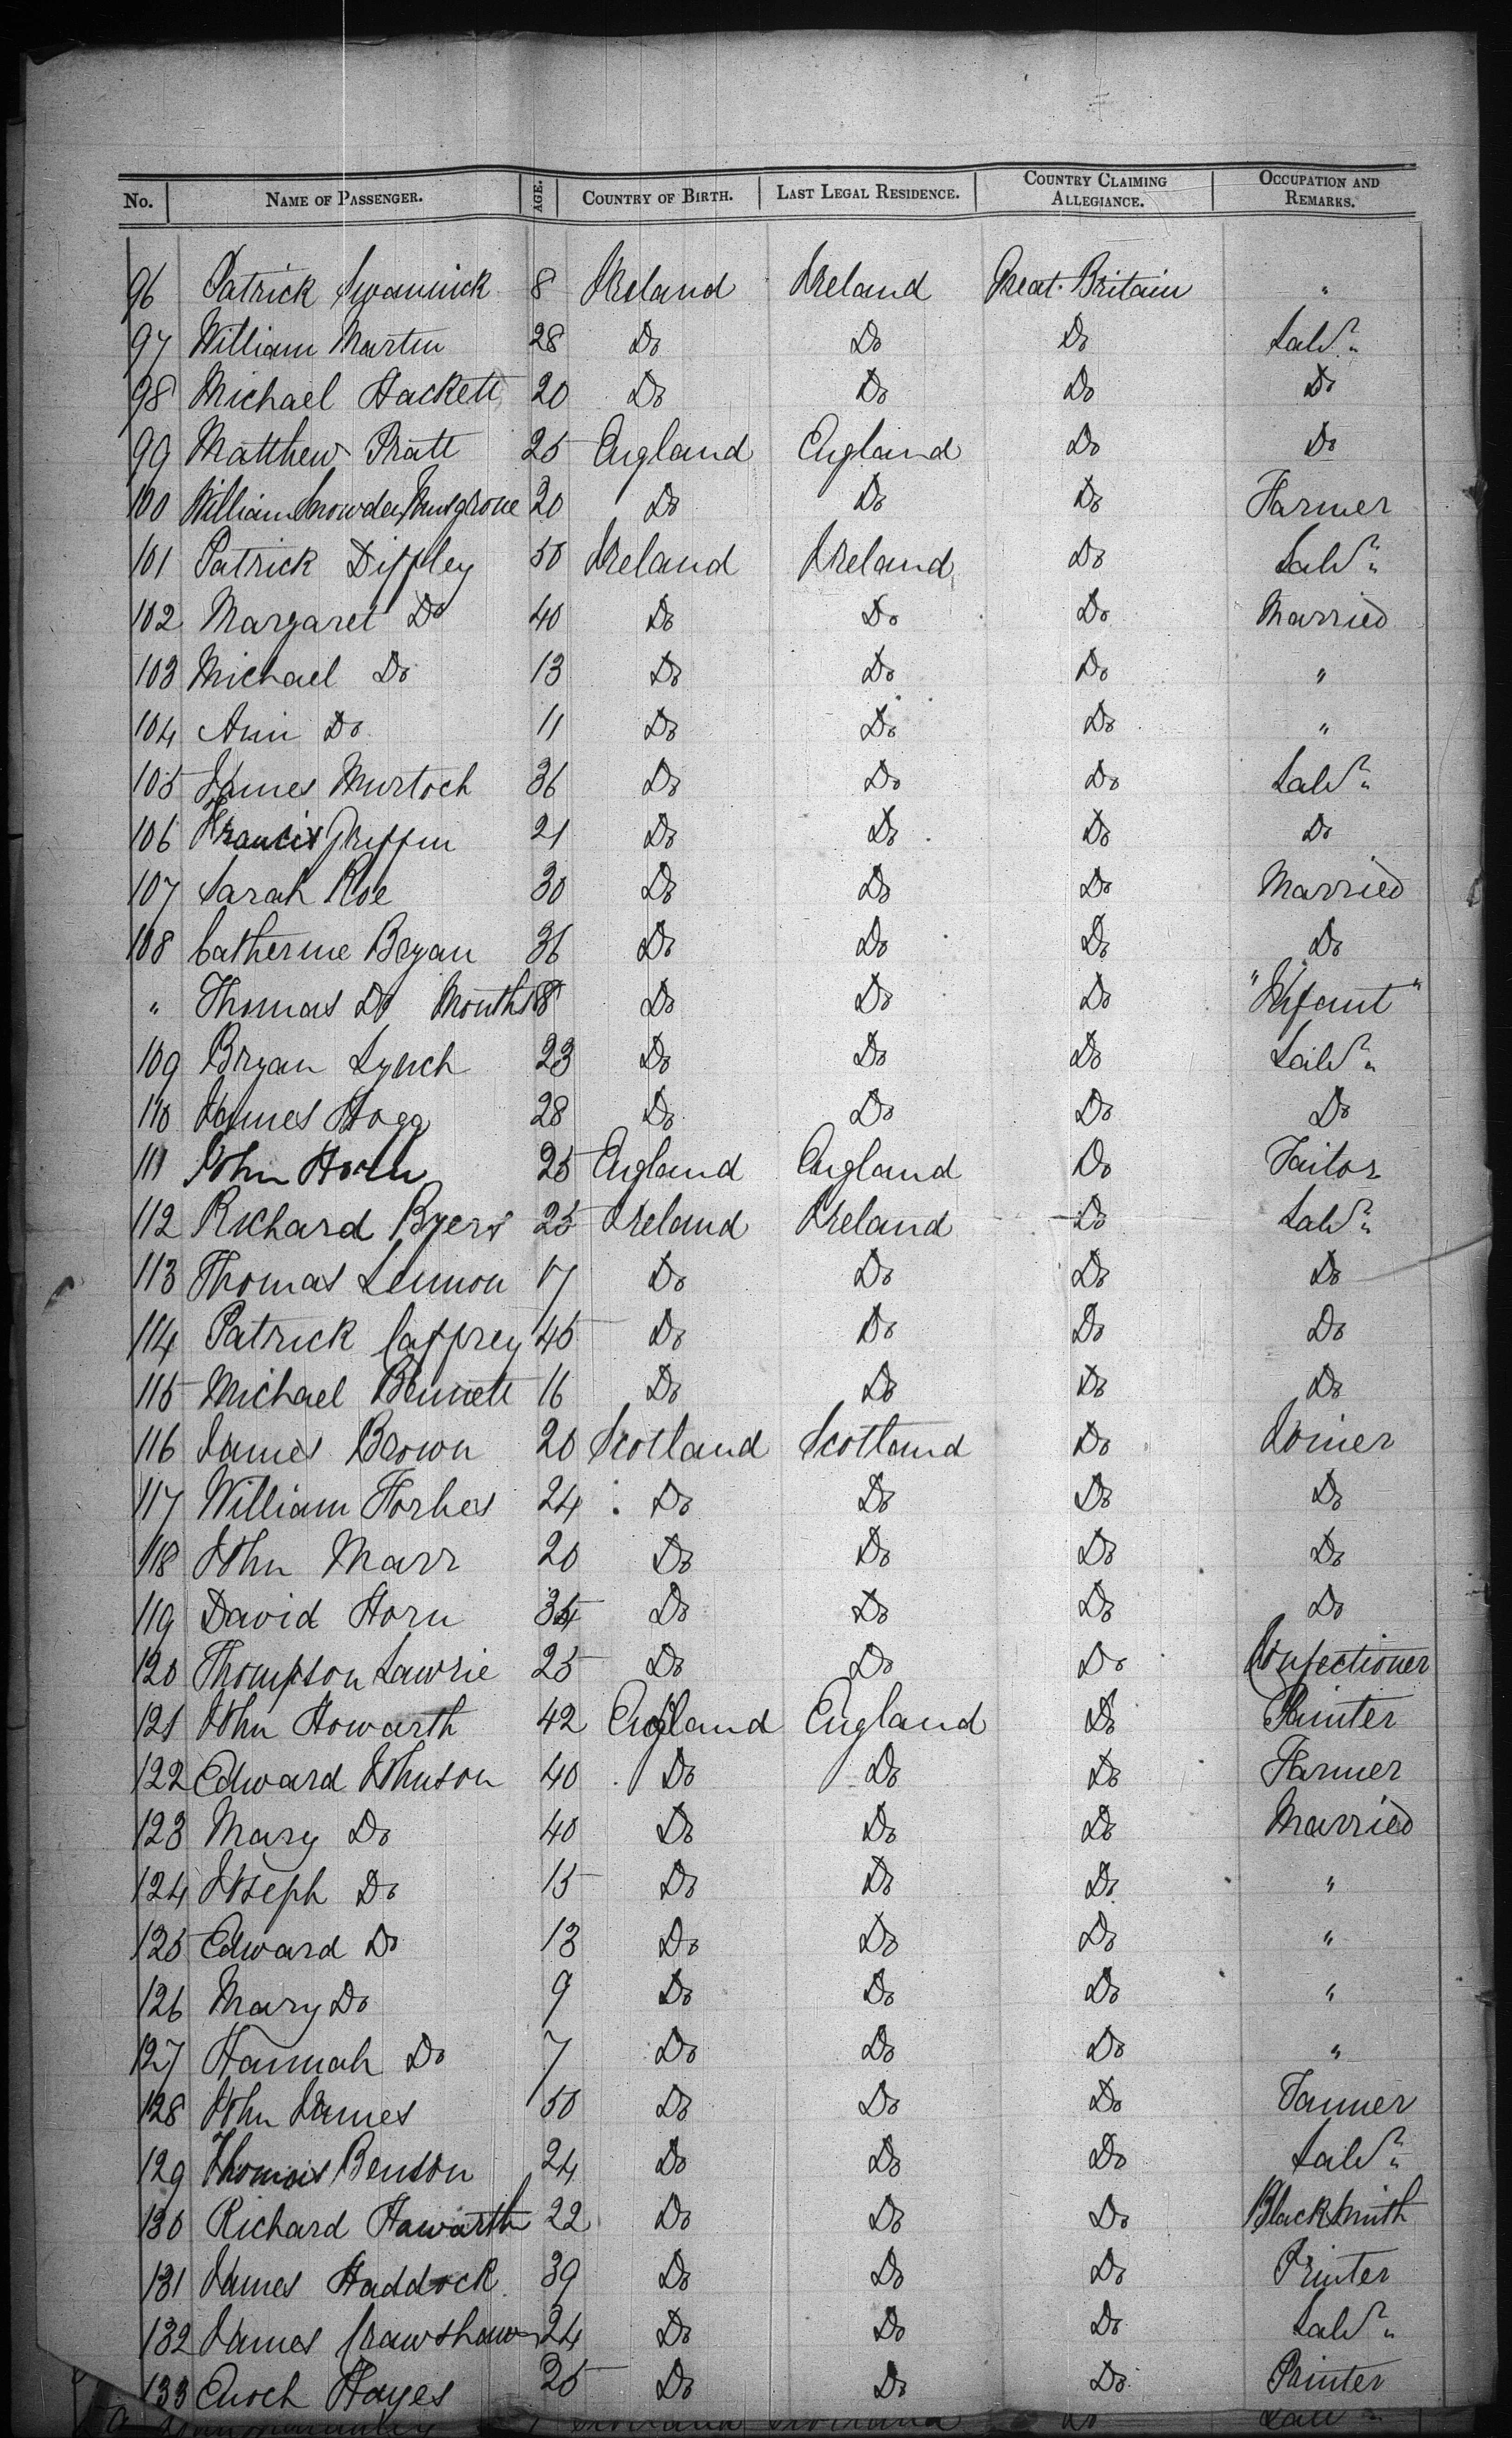 No. NAME OF PASSENGER. AGE. COUNTRY OF BIRTH. LAST LEGAL RESIDENCE. COUNTRY CLAIMING ALLEGIANCE. OCCUPATION AND REMARKS.
96 Patrick Swannick 8 Ireland Ireland Great Britain "
97 William Martin 28 Do Do Do Labr "
98 Michael Hackett 20 Do Do Do Do
99 Matthew Pratt 25 England England Do Do
100 William Snowden Musgrove 20 Do Do Do Farmer
101 Patrick Diffley 50 Ireland Ireland Do Labr "
102 Margaret Do 40 Do Do Do Married
103 Michael Do 13 Do Do Do "
104 Ann Do 11 Do Do Do "
105 James Murtoch 36 Do Do Do Labr "
106 Francis Griffin 21 Do Do Do Do
107 Sarah Roe 30 Do Do Do Married
108 Catherine Bryan 36 Do Do Do Do
" Thomas Do Months 8 Do Do Do "Infant"
109 Bryan Lynch 23 Do Do Do Labr "
110 James Hogg 28 Do Do Do Do
111 John Horn 25 England England Do Tailor
112 Richard Byers 25 Ireland Ireland Do Labr "
113 Thomas Lennon 17 Do Do Do Do
114 Patrick Caffrey 45 Do Do Do Do
115 Michael Bennett 16 Do Do Do Do
116 James Brown 20 Scotland Scotland Do Joiner
117 William Forbes 24 Do Do Do Do
118 John Marr 20 Do Do Do Do
119 David Horn 34 Do Do Do Do
120 Thompson Lawrie 25 Do Do Do Confectioner
121 John Howarth 42 England England Do Painter
122 Edward Johnson 40 Do Do Do Farmer
123 Mary Do 40 Do Do Do Married
124 Joseph Do 15 Do Do Do "
125 Edward Do 13 Do Do Do "
126 Mary Do 9 Do Do Do "
127 Hannah Do 7 Do Do Do "
128 John James 50 Do Do Do Tanner
129 Thomas Benson 24 Do Do Do Labr "
130 Richard Haworth 22 Do Do Do Blacksmith
131 James Haddock 39 Do Do Do Printer
132 James Crawshaw 24 Do Do Do Labr "
133 Enoch Hayes 25 Do Do Do Painter